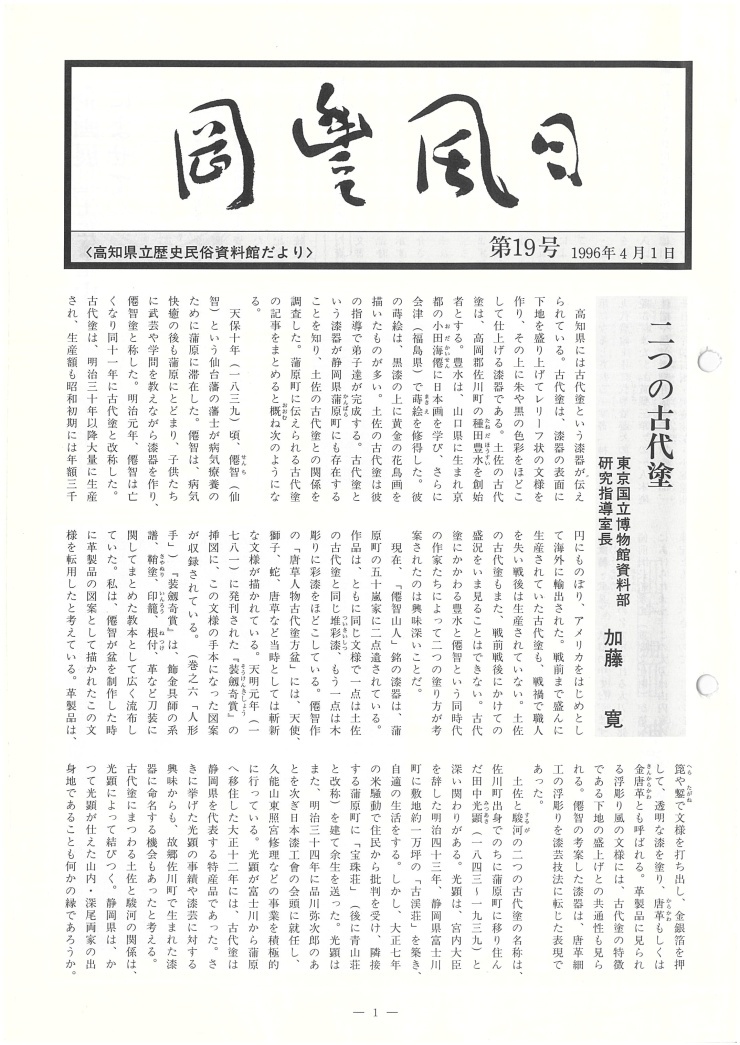 岡豊風日
〈高知県立歴史民俗資料館だより〉
第19号 1996年4月1日
二つの古代塗
東京国立博物館資料部
研究指導室長
加藤 寛
高知県には古代塗という漆器が伝え
られている。古代塗は、漆器の表面に
下地を盛り上げてレリーフ状の文様を
作り、その上に朱や黒の色彩をほどこ
して仕上げる漆器である。土佐の古代
塗は、高岡郡佐川町の種田豊水を創始
者とする。豊水は、山口県に生まれ京
都の小田海僊に日本画を学び、さらに
会津（福島県）で蒔絵を修得した。彼
の蒔絵は、黒漆の上に黄金の花鳥画を
描いたものが多い。土佐の古代塗は彼
の指導で弟子達が完成する。古代塗と
いう漆器が静岡県蒲原町にも存在する
ことを知り、土佐の古代塗との関係を
調査した。蒲原町に伝えられる古代塗
の記事をまとめると概ね次のようにな
る。
天保十年（一八三九）頃、僊智（仙
智）という仙台藩の藩士が病気療養の
ために蒲原に滞在した。僊智は、病気
快癒の後も蒲原にとどまり、子供たち
に武芸や学問を教えながら漆器を作り、
僊智塗と称した。明治元年、僊智は亡
くなり同十一年に古代塗と改称した。
古代塗は、明治三十年以降大量に生産
され、生産額も昭和初期には年額三千
円にものぼり、アメリカをはじめとし
て海外に輸出された。戦前まで盛んに
生産されていた古代塗も、戦禍で職人
を失い戦後は生産されていない。土佐
の古代塗もまた、戦前戦後にかけての
盛況をいま見ることはできない。古代
塗にかかわる豊水と僊智という同時代
の作家たちによって二つの塗り方が考
案されたのは興味深いことだ。
現在、「僊智山人」銘の漆器は、蒲
原町の五十嵐家に二点遺されている。
作品は、ともに同じ文様で一点は土佐
の古代塗と同じ堆彩漆、もう一点は木
彫りに彩漆をほどこしている。僊智作
の「唐草人物古代塗方盆」には、天使、
獅子、蛇、唐草など当時としては斬新
な文様が描かれている。天明元年（一
七八一）に発刊された『装劔奇賞』の
挿図に、この文様の手本になった図案
が収録されている。（巻之六「人形
手」）『装劔奇賞』は、飾金具師の系
譜、鞘塗、印籠、根付、革など刀装に
関してまとめた教本として広く流布し
ていた。私は、僊智が盆を制作した時
に革製品の図案として描かれたこの文
様を転用したと考えている。革製品は、
箆や鏨で文様を打ち出し、金銀箔を押
して、透明な漆を塗り、唐革もしくは
金唐革とも呼ばれる。革製品に見られ
る浮彫り風の文様には、古代塗の特徴
である下地の盛上げとの共通性も見ら
れる。僊智の考案した漆器は、唐革細
工の浮彫りを漆芸技法に転じた表現で
あった。
土佐と駿河の二つの古代塗の名称は、
佐川町出身でのちに蒲原町に移り住ん
だ田中光顕（一八四三〜一九三九）と
深い関わりがある。光顕は、宮内大臣
を辞した明治四十三年、静岡県富士川
町に敷地約一万坪の「古渓荘」を築き、
自適の生活をする。しかし、大正七年
の米騒動で住民から批判を受け、隣接
する蒲原町に「宝珠荘」（後に青山荘
と改称）を建て余生を送った。光顕は
また、明治三十四年に品川弥次郎のあ
とを次ぎ日本漆工會の会頭に就任し、
久能山東照宮修理などの事業を積極的
に行っている。光顕が富士川から蒲原
へ移住した大正十二年には、古代塗は
静岡県を代表する特産品であった。さ
きに挙げた光顕の事績や漆芸に対する
興味からも、故郷佐川町で生まれた漆
器に命名する機会もあったと考える。
古代塗にまつわる土佐と駿河の関係は、
光顕によって結びつく。静岡県は、か
つて光顕が仕えた山内・深尾両家の出
身地であることも何かの縁であろうか。
— 1 —